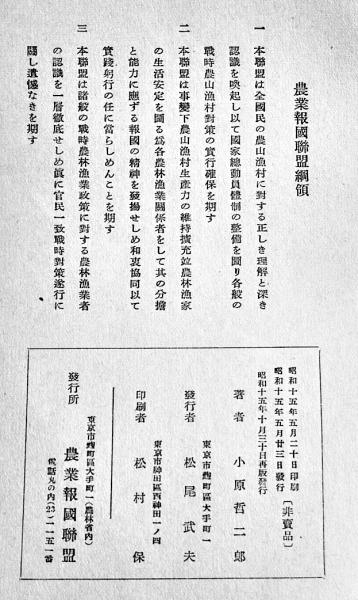 農業報國聯盟綱領
一 本聯盟は全國民の農山漁村に對する正しき理解と深き
認識を喚起し以て國家總動員體制の整備を圖り各般の
戰時農山漁村對策の實行確保を期す
二 本聯盟は事變下農山漁村生産力の維持擴充竝農林漁家
の生活安定を圖る爲各農林漁業關係者をして其の分擔
と能力に應ずる報國の精神を發揚せしめ和衷協同以て
實踐躬行の任に當らしめんことを期す
三 本聯盟は諸般の戰時農林漁業政策に對する農林漁業者
の認識を一層徹底せしめ眞に官民一致戰時對策遂行に
關し遺憾なきを期す
昭和十五年五月二十日印刷
昭和十五年五月廿三日發行 〔非賣品〕
昭和十五年十月三十日再版發行
著者 小原哲二郎
東京市麴町區大手町一
發行者 松尾武夫
東京市神田區西神田一ノ四
印刷者 松村保
東京市麴町區大手町一(農林省內)
發行所 農業報國聯盟
電話丸の內23二一五一番